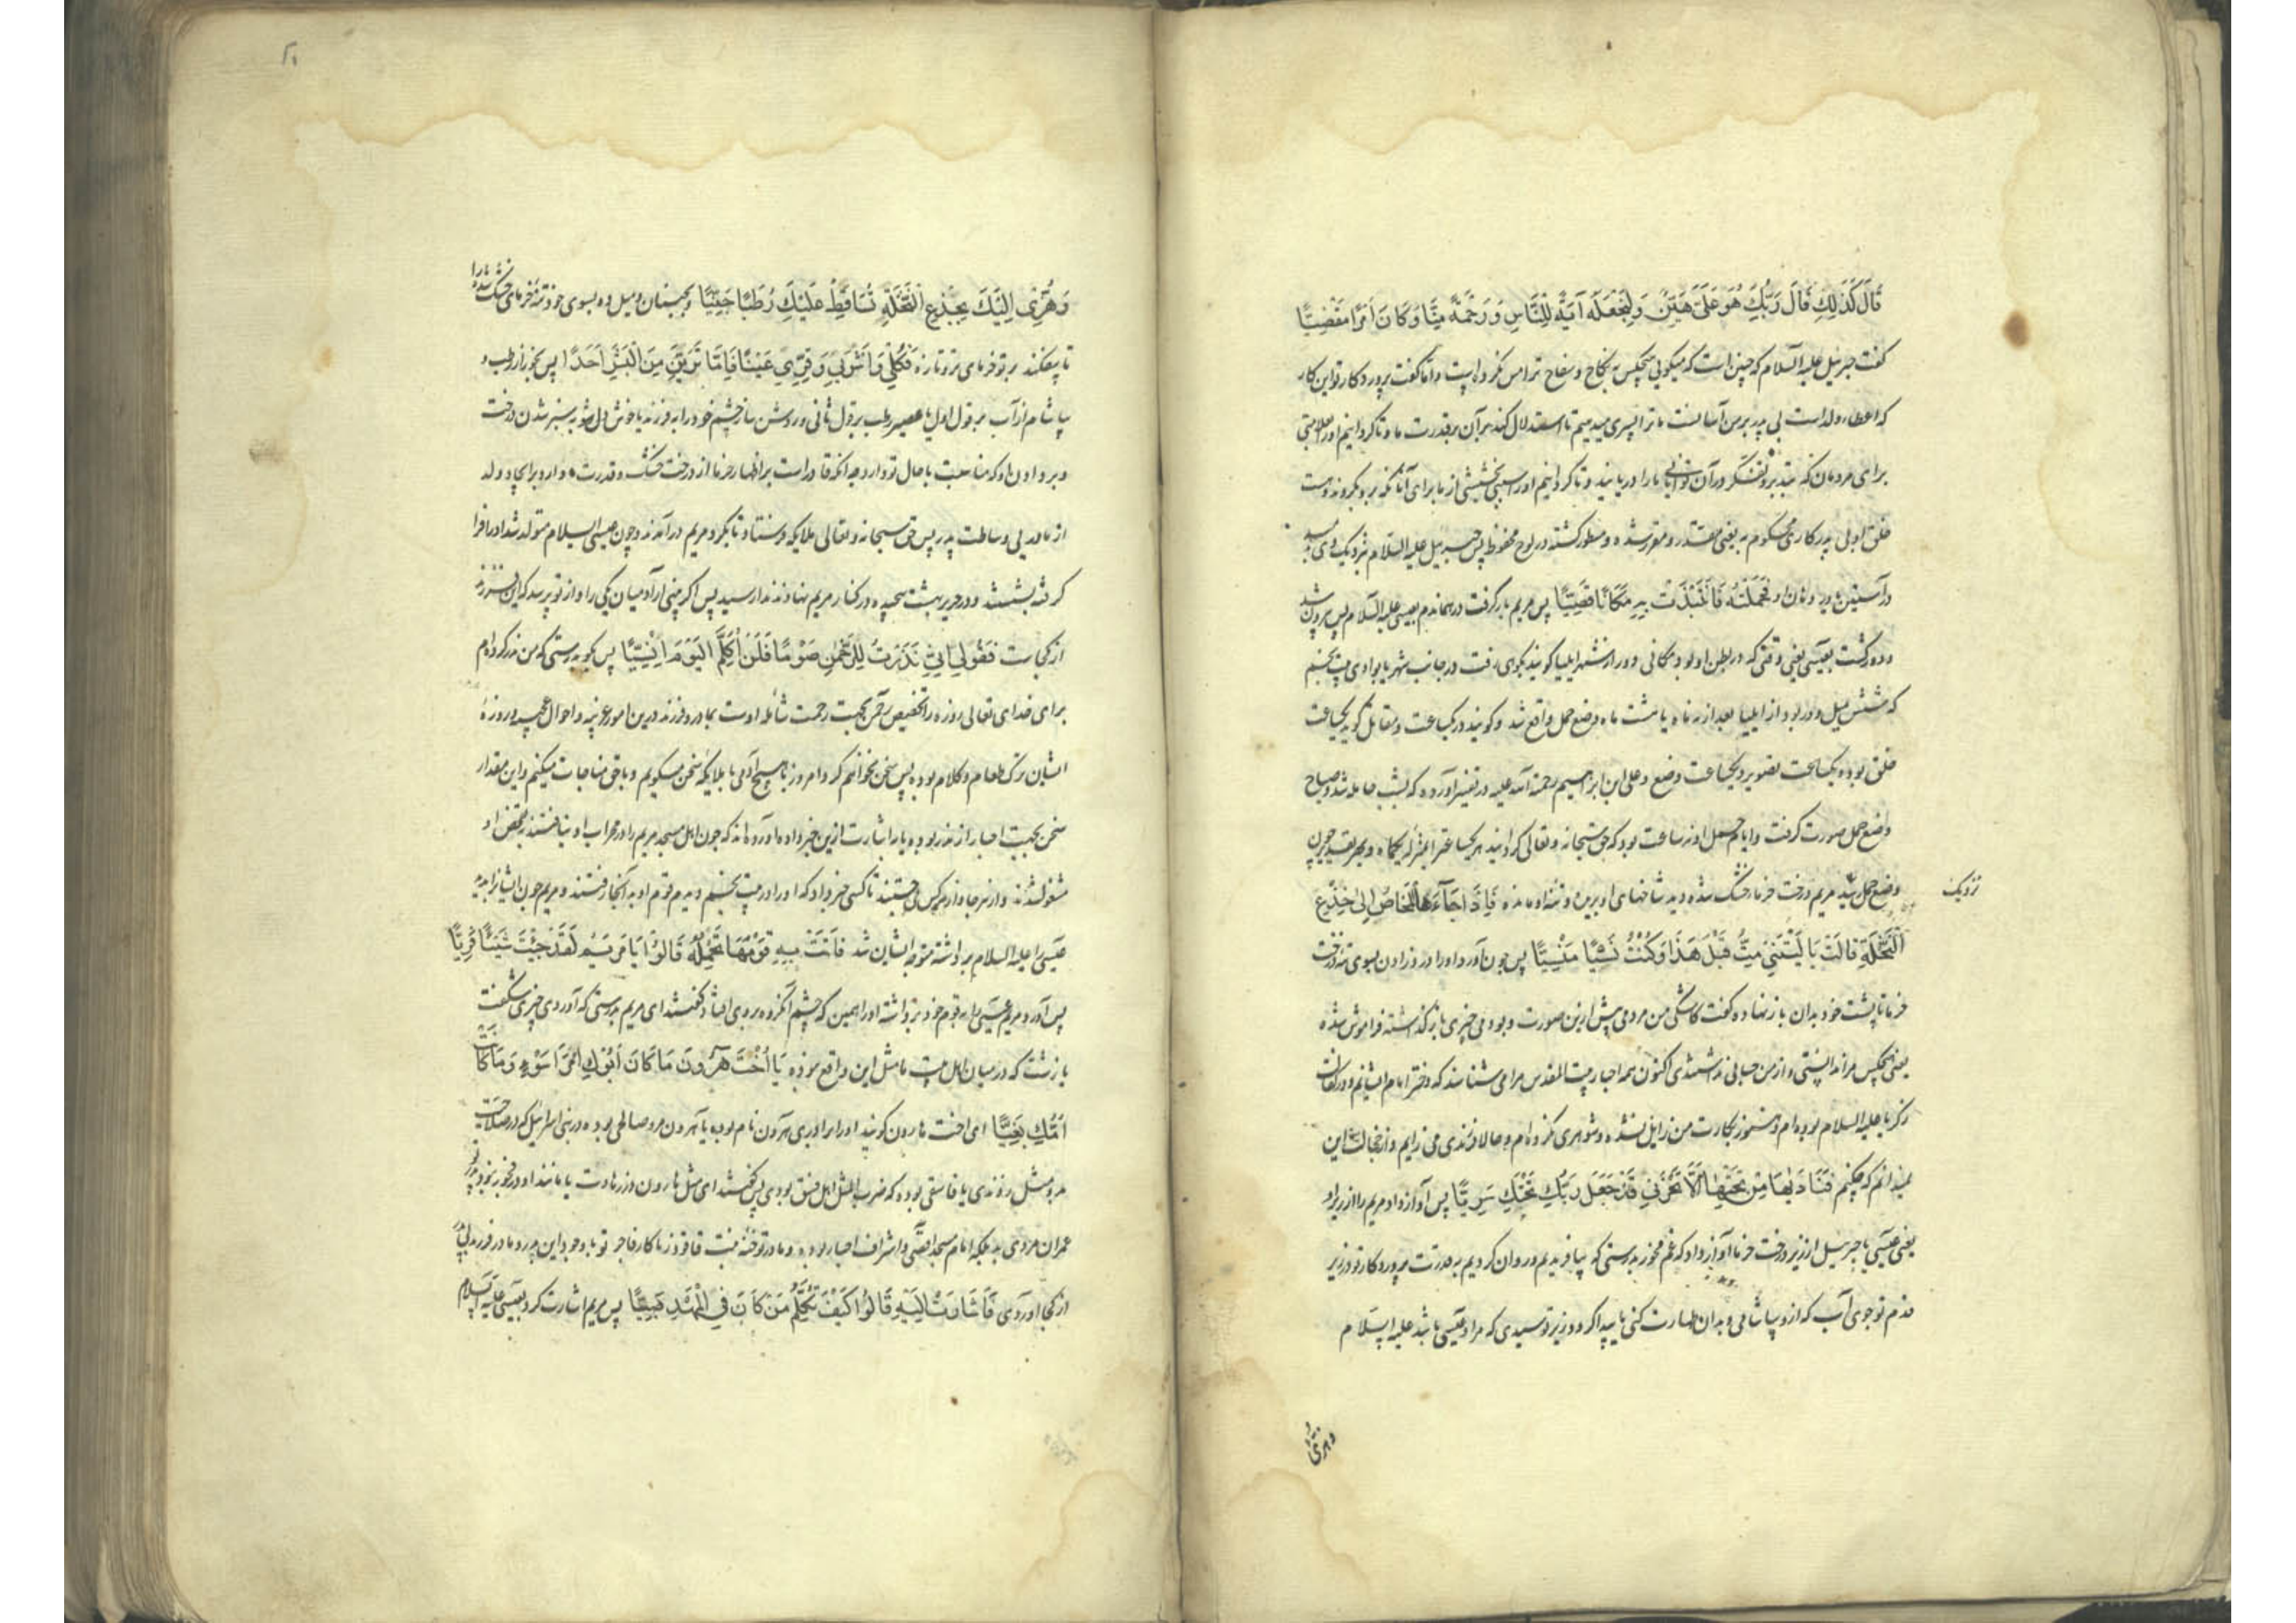 قَالَ كَذَلِكِ قَالَ رَبُّكِ هُوَ عَلَيَّ هَيِّنٌ وَلِنَجْعَلَهُ آيَةً لِلنَّاسِ وَرَحْمَةً مِنَّا وَكَانَ أَمْرًا مَقْضِيًّا
كفت جبرئيل عليه السلام كه چنين است كه ميكويى هيچكس به نكاح و سفاح ترا مس نكرده است و اما كفت پروردكار تو اين كار
كه اعطاء ولد است بى پدر بر من آسانست ما ترا پسرى ميدهيم تا استدلال كنند بر آن بر قدرت ما و تا كردانيم او را علامتى
براى مردمان كه بتدبر و تفكر در آن ما را دريابند و تا كردانيم او را سبب بخشش از ما براى آنانكه بدو بكروند و هست
خلق او بى پدر كارى محكوم به يعنى مقدر و مقرر شده و مسطور كشته در لوح محفوظ پس جبرئيل عليه السلام نزديك وى رسيد
در آستين او دميد فَحَمَلَتْهُ فَانْتَبَذَتْ بِهِ مَكَانًا قَصِيًّا پس مريم بار كرفت در همان دم بعيسى عليه السلام پس بيرون شد
و دور كشت بعيسى يعنى وقتى كه در بطن او بود بمكانى دور از شهر ايليا كويند بكوهى رفت در جانب شهر يا بوادى بيت لحم
كه شش ميل دور بود از ايليا بعد از نه ماه يا هشت ماه وضع حمل واقع شد و كويند در يكساعت و مقاتل كويد يكساعت
خلق بوده و يكساعت تصوير و يكساعت وضع و على ابن ابراهيم رحمة الله عليه در تفسير آورده كه بشب حامله شد و صباح
وضع حمل صورت كرفت و ايام حمل او نه ساعت بود كه حق سبحانه و تعالى كردانيد هر يكساعت را بمنزله يكماه و بهر تقدير چون
نزديك
وضع حمل شد مريم درخت خرما خشك شده ديد شاخهاى او بريده و تنه او مانده فَأَجَاءَهَا الْمَخَاضُ إِلَى جِذْعِ
النَّخْلَةِ قَالَتْ يَا لَيْتَنِي مِتُّ قَبْلَ هَذَا وَكُنْتُ نَسْيًا مَنْسِيًّا پس چون آورد او را درد زادن بسوى تنه درخت
خرما تا پشت خود بدان باز نهاده كفت كاشكى من مردمى پيش ازين صورت و بودمى چيزى باز كذاشته فراموش شده
يعنى هيچكس مرا ندانستى و از من حسابى نداشتندى اكنون همه احبار بيت المقدس مرا مى شناسند كه دختر امام ايشانم و در كفالت
زكريا عليه السلام بوده ام و هنوز بكارت من زايل نشده و شوهرى نكرده ام و حالا فرزندى مى زايم و از خجالت اين
نميدانم كه چكنم فَنَادَاهَا مِنْ تَحْتِهَا أَلَّا تَحْزَنِي قَدْ جَعَلَ رَبُّكِ تَحْتَكِ سَرِيًّا پس آواز داد مريم را از زير او
يعنى عيسى يا جبرئيل از زير درخت خرما آواز داد كه غم مخور بدرستى كه بيافريديم و روان كرديم بقدرت پروردكار تو در زير
قدم تو جوى آب كه ازو بياشامى و بدان طهارت كنى يا پيدا كرد در زير تو سيدى كه مراد عيسى باشد عليه السلام
وهزى
وَهُزِّي إِلَيْكِ بِجِذْعِ النَّخْلَةِ تُسَاقِطْ عَلَيْكِ رُطَبًا جَنِيًّا و بجنبان و ميل ده بسوى خود تنه خرماى خشك شده را
تا بيفكند بر تو خرماى تر و تازه فَكُلِي وَاشْرَبِي وَقَرِّي عَيْنًا فَإِمَّا تَرَيِنَّ مِنَ الْبَشَرِ أَحَدًا پس بخور از رطب و
بياشام از آب بر قول اول يا عصير رطب بر قول ثانى و روشن ساز چشم خود را بفرزند يا خوش دل شو به سبز شدن درخت
و بر دادن او كه مناسبت با حال تو دارد چه آنكه قادر است بر اظهار خرما از درخت خشك قدرت دارد بر ايجاد ولد
از مادر بى وساطت پدر پس حق سبحانه و تعالى ملايكه فرستاد تا بكرد مريم درآمدند و چون عيسى عليه السلام متولد شد او را فرا
كرفته بشستند و در حرير بهشت پيچيده در كنار مريم نهادند ندا رسيد پس اكر بينى از آدميان يكى را و از تو پرسد كه اين فرزند
از كجاست فَقُولِي إِنِّي نَذَرْتُ لِلرَّحْمَنِ صَوْمًا فَلَنْ أُكَلِّمَ الْيَوْمَ إِنْسِيًّا پس بكو بدرستى كه من نذر كرده ام
براى خداى تعالى روزه را تخصيص رحمن بجهت رحمت شامله اوست بمادر و فرزند درين امور غريبه و احوال عجيبه و روزه
ايشان ترك طعام و كلام بوده پس سخن نخواهم كرد امروز با هيچ آدمى با ملايكه سخن ميكويم و با حق مناجات ميكنم و اين مقدار
سخن بجهت اخبار از نذر بوده يا باشارت ازين خبر داده آورده اند كه چون اهل مسجد مريم را در محراب او نيافتند بتفحص او
مشغول شدند و از هر جا و از هر كس مى جستند تا كسى خبر داد كه او را در بيت لحم ديدم قوم او به آنجا رفتند و مريم چون ايشان را بديد
عيسى را عليه السلام برداشته متوجه ايشان شد فَأَتَتْ بِهِ قَوْمَهَا تَحْمِلُهُ قَالُوا يَا مَرْيَمُ لَقَدْ جِئْتِ شَيْئًا فَرِيًّا
پس آورد مريم عيسى را به قوم خود برداشته او را همين كه چشم آن كروه بر وى افتاد كفتند اى مريم بدرستى كه آوردى چيزى شكفت
يا زشت كه در ميان اهل بيت ما مثل اين واقع نبوده يَا أُخْتَ هَارُونَ مَا كَانَ أَبُوكِ امْرَأَ سَوْءٍ وَمَا كَانَتْ
أُمُّكِ بَغِيًّا اى اخت هارون كويند او را برادرى هرون نام بوده يا هرون مرد صالحى بوده در بنى اسرائيل كه در صلاحيت
بدو مثل زدندى يا فاسقى بوده كه ضرب المثل اهل فسق بودى پس كفتند اى مثل هارون در زهادت يا مانند او در فجور نبود پدر تو
عمران مردى بد بلكه امام مسجد اقصى و اشراف احبار بود و مادر تو حنه بنت فاقوذ زناكار فاجر تو با وجود اين پدر و مادر فرزند بى پدر
از كجا آوردى فَأَشَارَتْ إِلَيْهِ قَالُوا كَيْفَ نُكَلِّمُ مَنْ كَانَ فِي الْمَهْدِ صَبِيًّا پس مريم اشارت كرد بعيسى عليه السلام